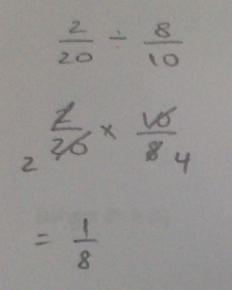 2/20 ÷ 8/10
2 2/20 × 10/8 4
= 1/8